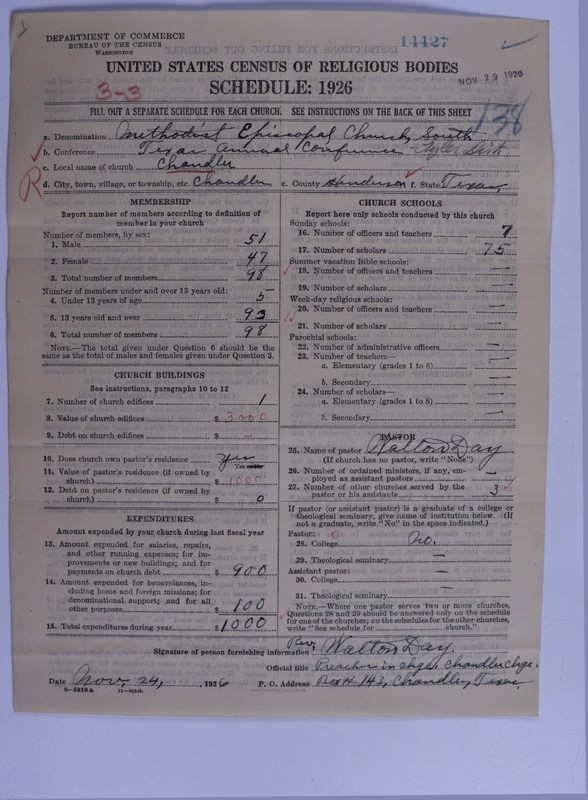 DEPARTMENT OF COMMERCE
BUREAU OF THE CENSUS
WASHINGTON
14427
UNITED STATES CENSUS OF RELIGIOUS BODIES
SCHEDULE: 1926
NOV 29 1926
3-3
FILL OUT A SEPARATE SCHEDULE FOR EACH CHURCH. SEE INSTRUCTIONS ON THE BACK OF THIS SHEET
138
a. Denomination Methodist Episcopal Church, South
b. Conference Texas Annual Conference Tyler Dist.
c. Local name of church Chandler
d. City, town, village, or township, etc. Chandler e. County Henderson f. State Texas
R
MEMBERSHIP
Report number of members according to definition of member in your church
Number of members, by sex:
1. Male 51
2. Female 47
3. Total number of members 98
Number of members under and over 13 years old:
4. Under 13 years of age 5
5. 13 years old and over 93
6. Total number of members 98
NOTE.—The total given under Question 6 should be the
same as the total of males and females given under Question 3.
CHURCH BUILDINGS
See instructions, paragraphs 10 to 12
7. Number of church edifices 1
8. Value of church edifices $ 3000
9. Debt on church edifices $ 0
10. Does church own pastor's residence? Yes
Yes or No
11. Value of pastor's residence (if owned by
church) $ 1000
12. Debt on pastor's residence (if owned by
church) $ 0
EXPENDITURES
Amount expended by your church during last fiscal year
13. Amount expended for salaries, repairs,
and other running expenses; for im-
provements or new buildings; and for
payments on church debt $ 900
14. Amount expended for benevolences, in-
cluding home and foreign missions; for
denominational support; and for all
other purposes $ 100
15. Total expenditures during year $ 1000
CHURCH SCHOOLS
Report here only schools conducted by this church
Sunday schools:
16. Number of officers and teachers 7
17. Number of scholars 75
Summer vacation Bible schools:
18. Number of officers and teachers —
19. Number of scholars —
Week-day religious schools:
20. Number of officers and teachers —
21. Number of scholars —
Parochial schools:
22. Number of administrative officers —
23. Number of teachers—
a. Elementary (grades 1 to 8) —
b. Secondary —
24. Number of scholars—
a. Elementary (grades 1 to 8) —
b. Secondary —
PASTOR
25. Name of pastor Walton Day
(If church has no pastor, write "None")
26. Number of ordained ministers, if any, em-
ployed as assistant pastors —
27. Number of other churches served by the
pastor or his assistants 3
If pastor (or assistant pastor) is a graduate of a college or
theological seminary, give name of institution below. (If
not a graduate, write "No" in the space indicated.)
Pastor: 0
28. College No.
29. Theological seminary —
Assistant pastor:
30. College —
31. Theological seminary —
NOTE.—Where one pastor serves two or more churches,
Questions 28 and 29 should be answered only on the schedule
for one of the churches; on the schedules for the other churches,
write "See schedule for church."
Signature of person furnishing information Rev. Walton Day.
Official title Preacher in chge. Chandler Chge.
Date Nov. 24, 1926 P. O. Address Box # 143, Chandler, Texas.
8-5518 a